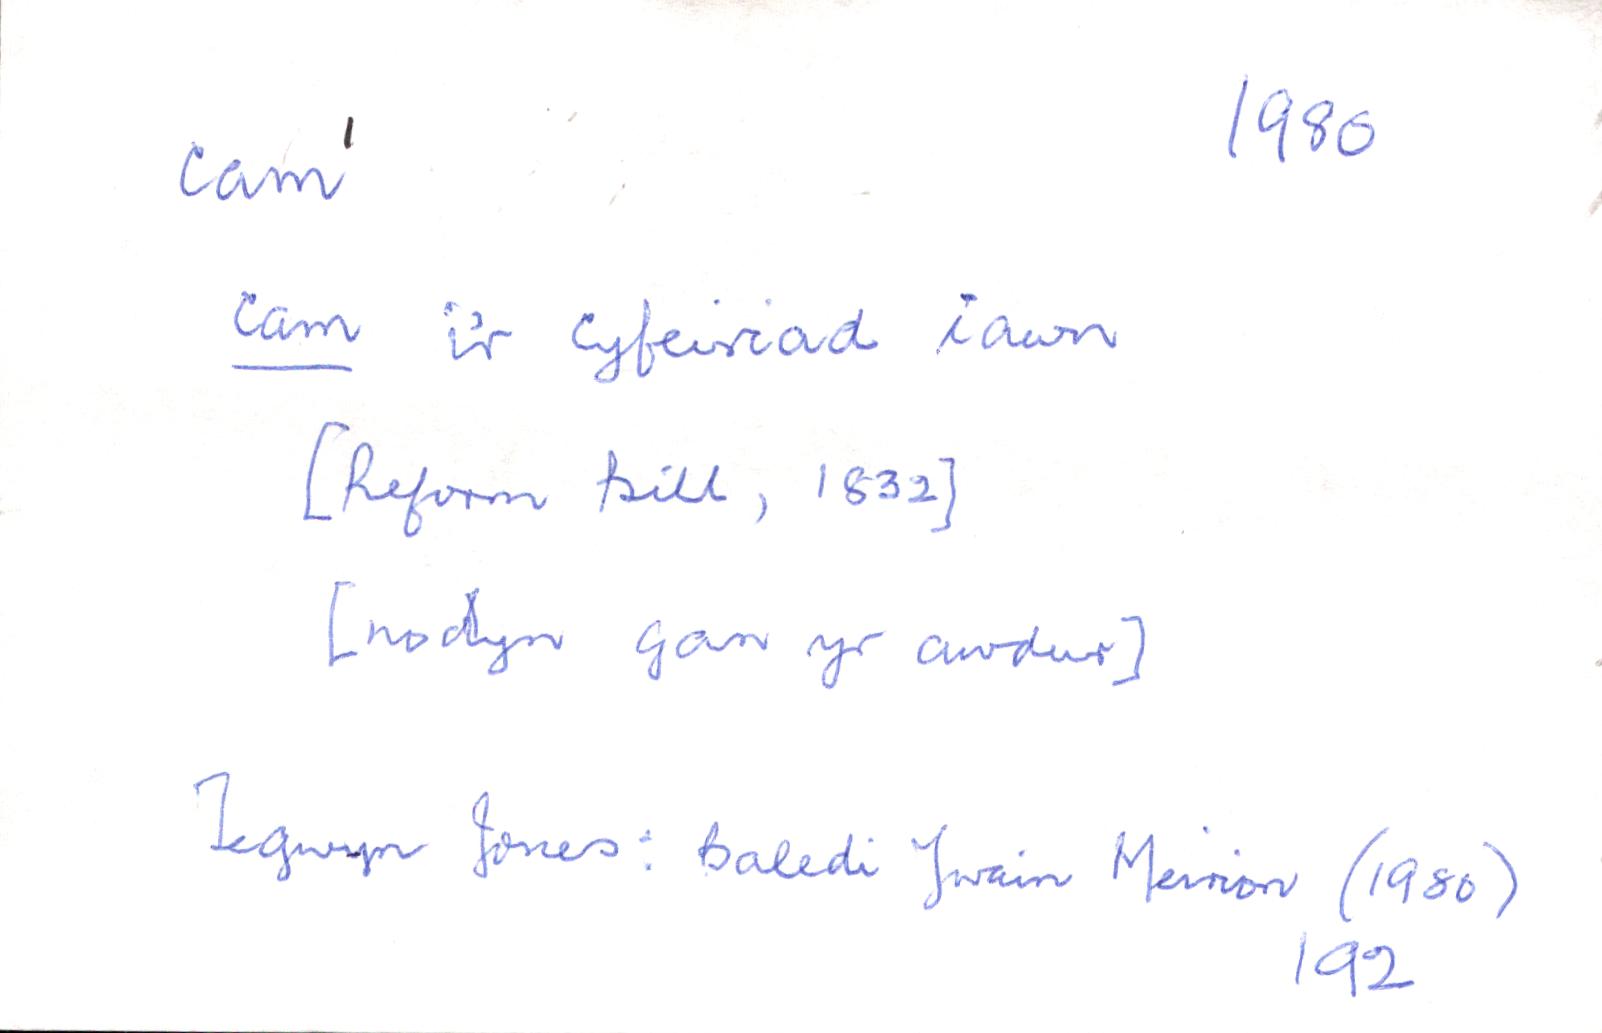 cam¹ 1980
cam i'r cyfeiriad iawn
[Reform Bill, 1832]
[nodyn gan yr awdur]
Tegwyn Jones: Baledi Ywain Meirion (1980)
192